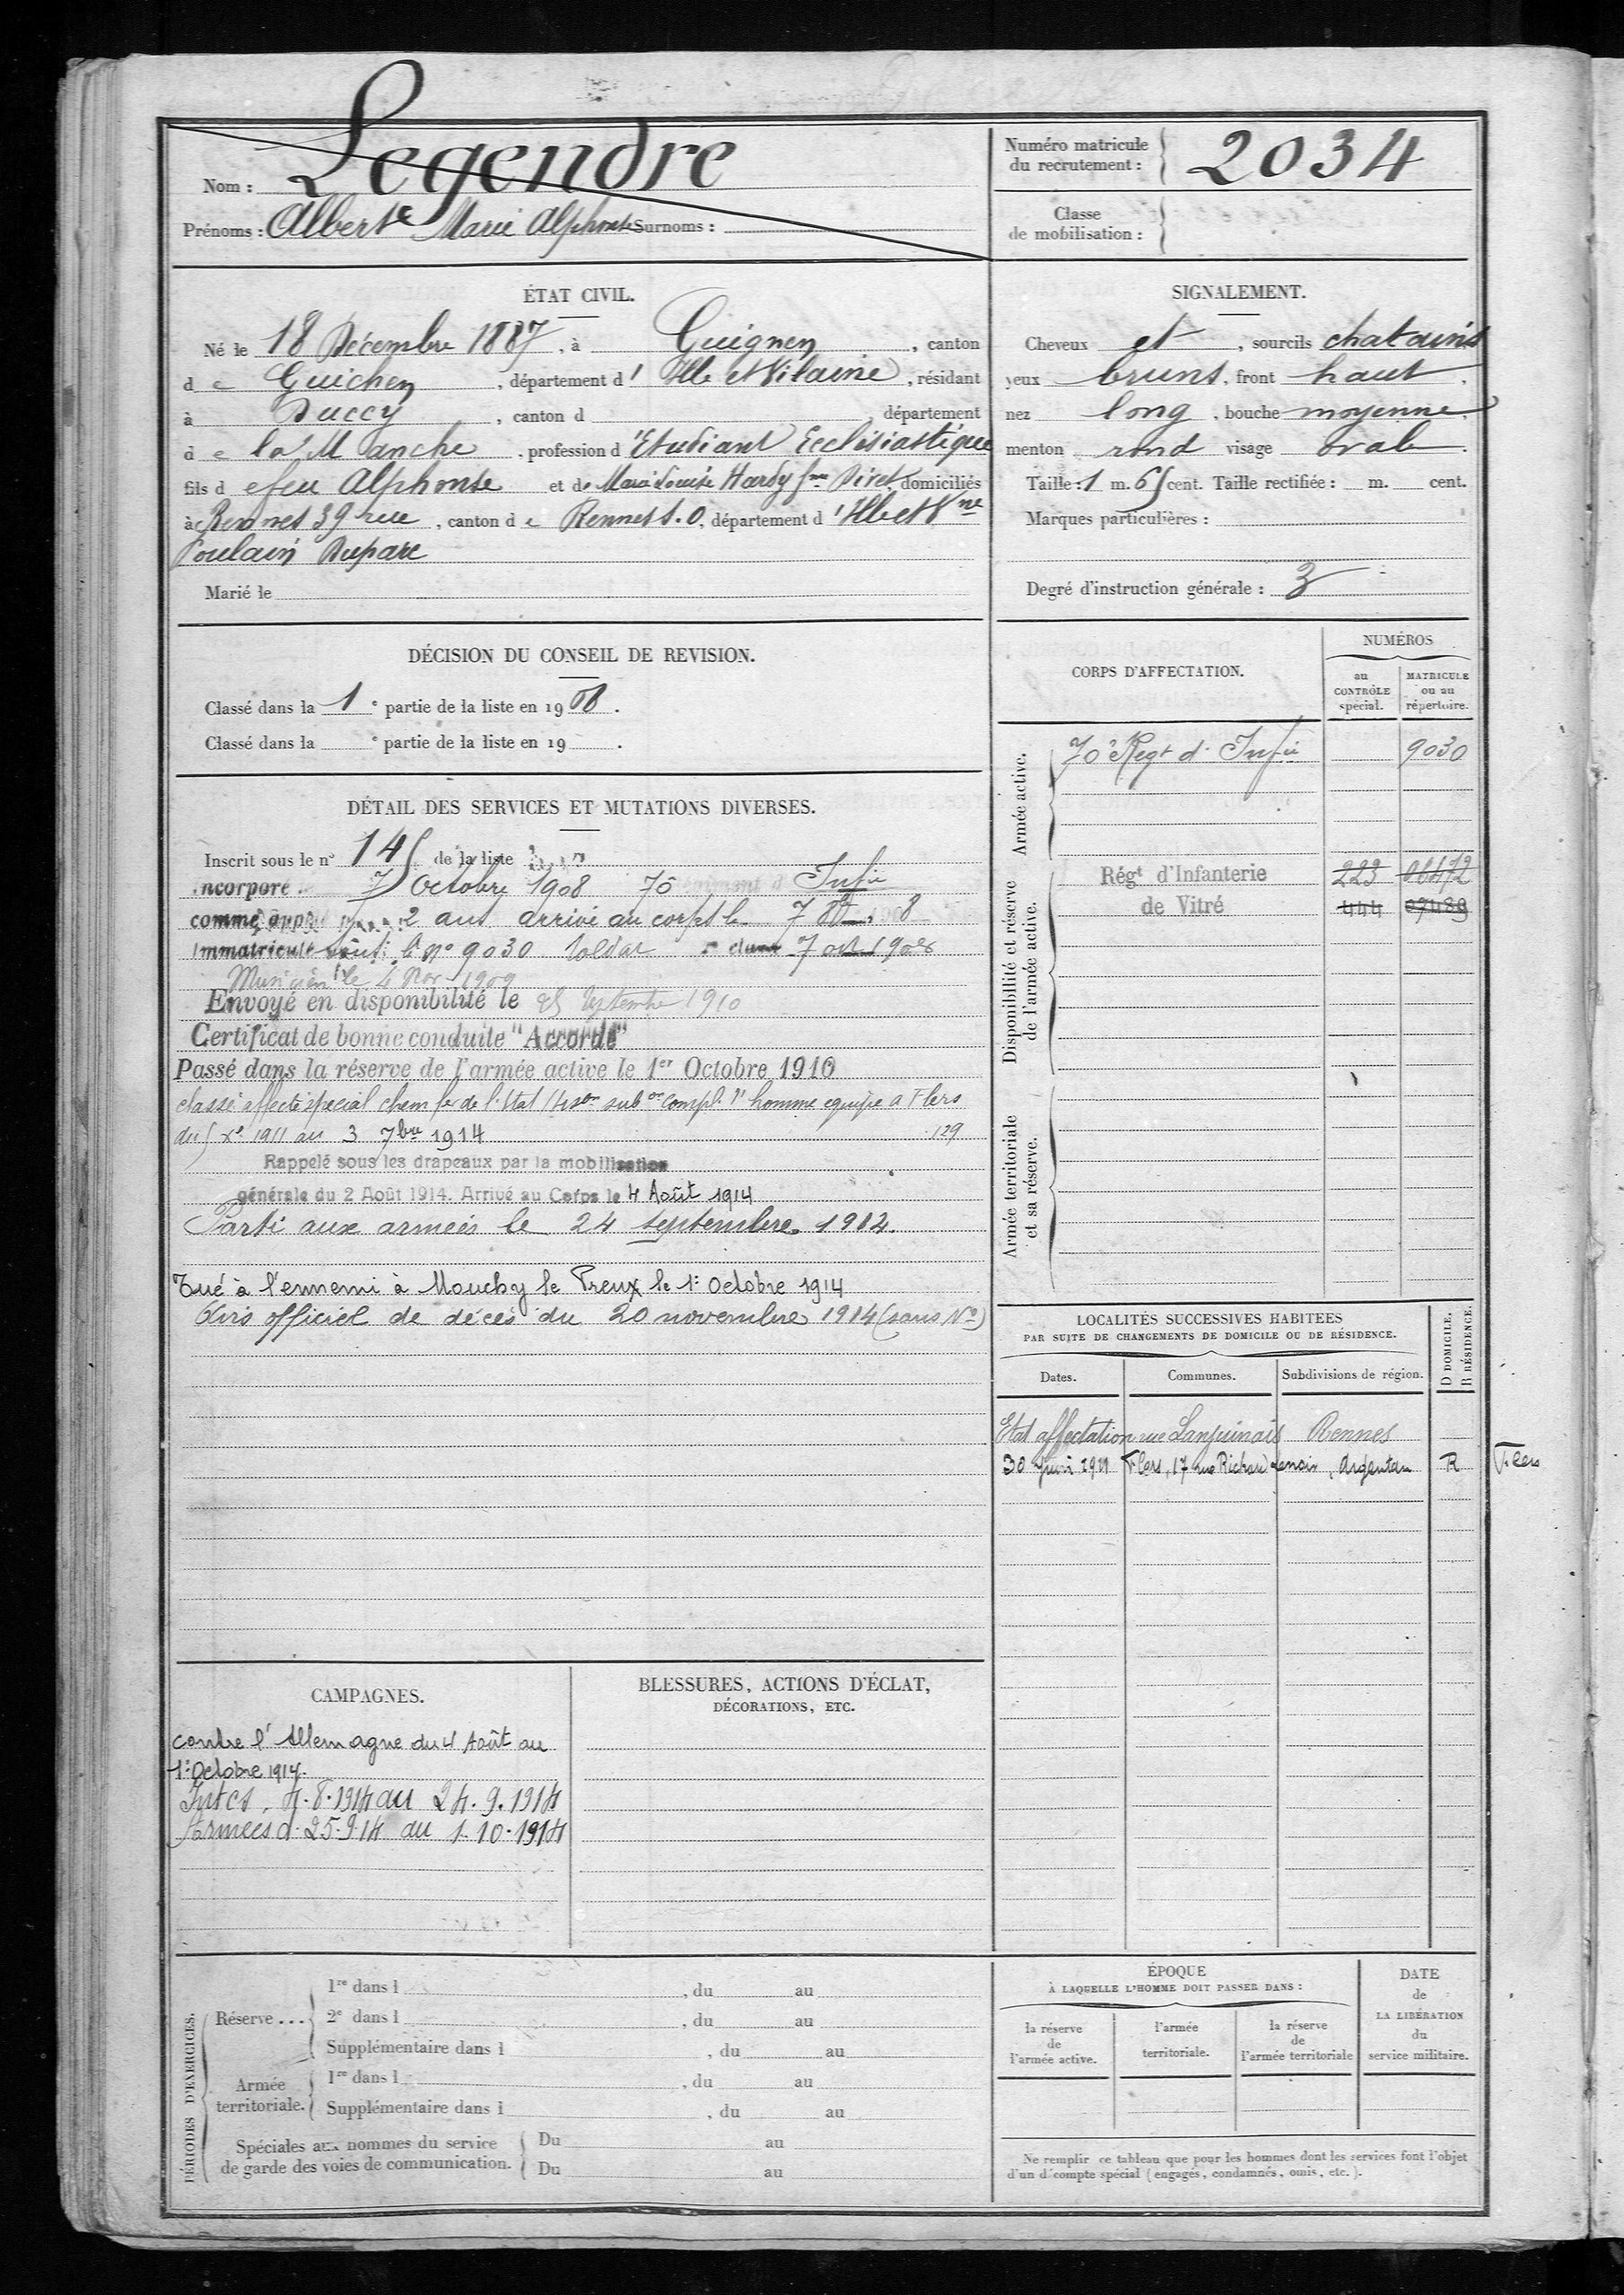 Nom : Legendre
Prénoms : Albert Marie Alphonse Surnoms :
Numéro matricule du recrutement : 2034
Classe de mobilisation :
ÉTAT CIVIL.
Né le 18 Décembre 1887, à Guignen, canton
de Guichen, département d'Ille et Vilaine, résidant
à Ducey, canton d , département
de la Manche, profession d'Etudiant Ecclésiastique
fils de feu Alphonse et de Marie Louise Hardy fme Piret, domiciliés
à Rennes 39 rue, canton de Rennes S.O, département d'Ille et Vne
Poulain Duparc
Marié le
SIGNALEMENT.
Cheveux et, sourcils chatains
yeux bruns, front haut,
nez long, bouche moyenne,
menton rond visage ovale.
Taille : 1 m. 65 cent. Taille rectifiée : m. cent.
Marques particulières :
Degré d'instruction générale : 3
DÉCISION DU CONSEIL DE REVISION.
Classé dans la 1e partie de la liste en 1908.
Classé dans la e partie de la liste en 19 .
DÉTAIL DES SERVICES ET MUTATIONS DIVERSES.
Inscrit sous le n° 145 de la liste
Incorporé 7 Octobre 1908 70 Infie
comme appelé 2 ans arrivé au corps le 7 8bre 1908
Immatriculé sous le n° 9030 soldat 7 oct 1908
Musicien le 4 Nov 1909
Envoyé en disponibilité le 25 septembre 1910
Certificat de bonne conduite "Accordé"
Passé dans la réserve de l'armée active le 1er Octobre 1910
classé affecté spécial chem fer de l'Etat (4 son subon compl. 1r homme équipe a Flers
du 5 Xe 1911 au 3 7bre 1914 129
Rappelé sous les drapeaux par la mobilisation
générale du 2 Août 1914. Arrivé au Corps le 4 Août 1914
Parti aux armées le 24 septembre 1914.
Tué à l'ennemi à Mouchy le Preux le 1: Octobre 1914
Avis officiel de décès du 20 novembre 1914 (sans No)
CORPS D'AFFECTATION.
NUMÉROS
au CONTRÔLE spécial.
MATRICULE ou au répertoire.
Armée active.
70e Regt d'Infie 9030
Disponibilité et réserve de l'armée active.
Régt d'Infanterie 223 06472
de Vitré 444 07489
Armée territoriale et sa réserve.
LOCALITÉS SUCCESSIVES HABITEES
PAR SUITE DE CHANGEMENTS DE DOMICILE OU DE RÉSIDENCE.
D DOMICILE.
R RÉSIDENCE.
Dates. Communes. Subdivisions de région.
Etat affectation rue Lanjuinais Rennes
30 Juin 1911 Flers, 17 rue Richard Lenoir, Argentan R Flers
CAMPAGNES.
contre l'Allemagne du 4 Août au
1: Octobre 1914.
Intcs. 4.8.1914 au 24.9.1914
Armées d. 25.9.14 au 1.10.1914
BLESSURES, ACTIONS D'ÉCLAT,
DÉCORATIONS, ETC.
PÉRIODES D'EXERCICES.
Réserve ...
1re dans l , du au
2e dans l , du au
Supplémentaire dans l , du au
Armée territoriale.
1re dans l , du au
Supplémentaire dans l , du au
Spéciales aux hommes du service
de garde des voies de communication.
Du au
Du au
ÉPOQUE
À LAQUELLE L'HOMME DOIT PASSER DANS :
la réserve de l'armée active.
l'armée territoriale.
la réserve de l'armée territoriale
DATE de LA LIBÉRATION du service militaire.
Ne remplir ce tableau que pour les hommes dont les services font l'objet
d'un décompte spécial (engagés, condamnés, omis, etc.).